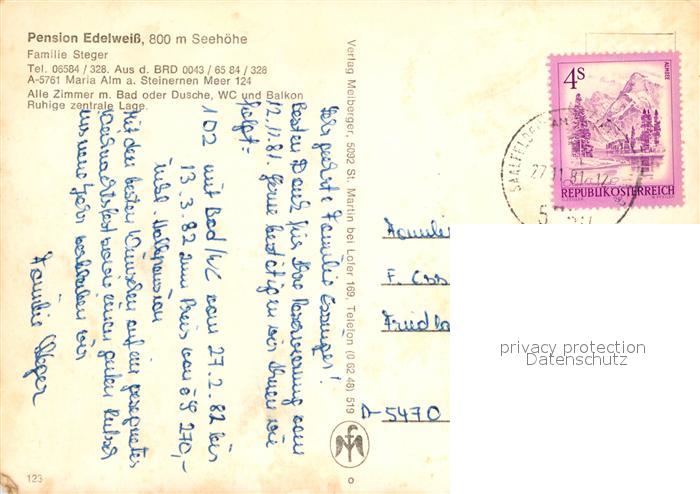 Pension Edelweiß, 800 m Seehöhe
Familie Steger
Tel. 06584 / 328. Aus d. BRD 0043 / 65 84 / 328
A-5761 Maria Alm a. Steinernen Meer 124
Alle Zimmer m. Bad oder Dusche, WC und Balkon
Ruhige zentrale Lage.
Sehr geehrte Familie Essinger!
Besten Dank für Ihre Reservierung vom
12.11.81. Gerne bestätigen wir Ihnen wie
folgt:
1 DZ mit Bad/WC vom 27.2.82 bis
13.3.82 zum Preis von öS 270,-
inkl. Halbpension
Mit den besten Wünschen auf ein gesegnetes
Weihnachtsfest sowie einen guten Rutsch
ins neue Jahr verbleiben wir
Familie Steger
Verlag Melberger, 5092 St. Martin bei Lofer 169, Telefon (0 62 48) 519
4S
ALMSEE
REPUBLIK ÖSTERREICH
27.11.81
Familie
F. Ess
Friedla
D-5470
privacy protection
Datenschutz
123